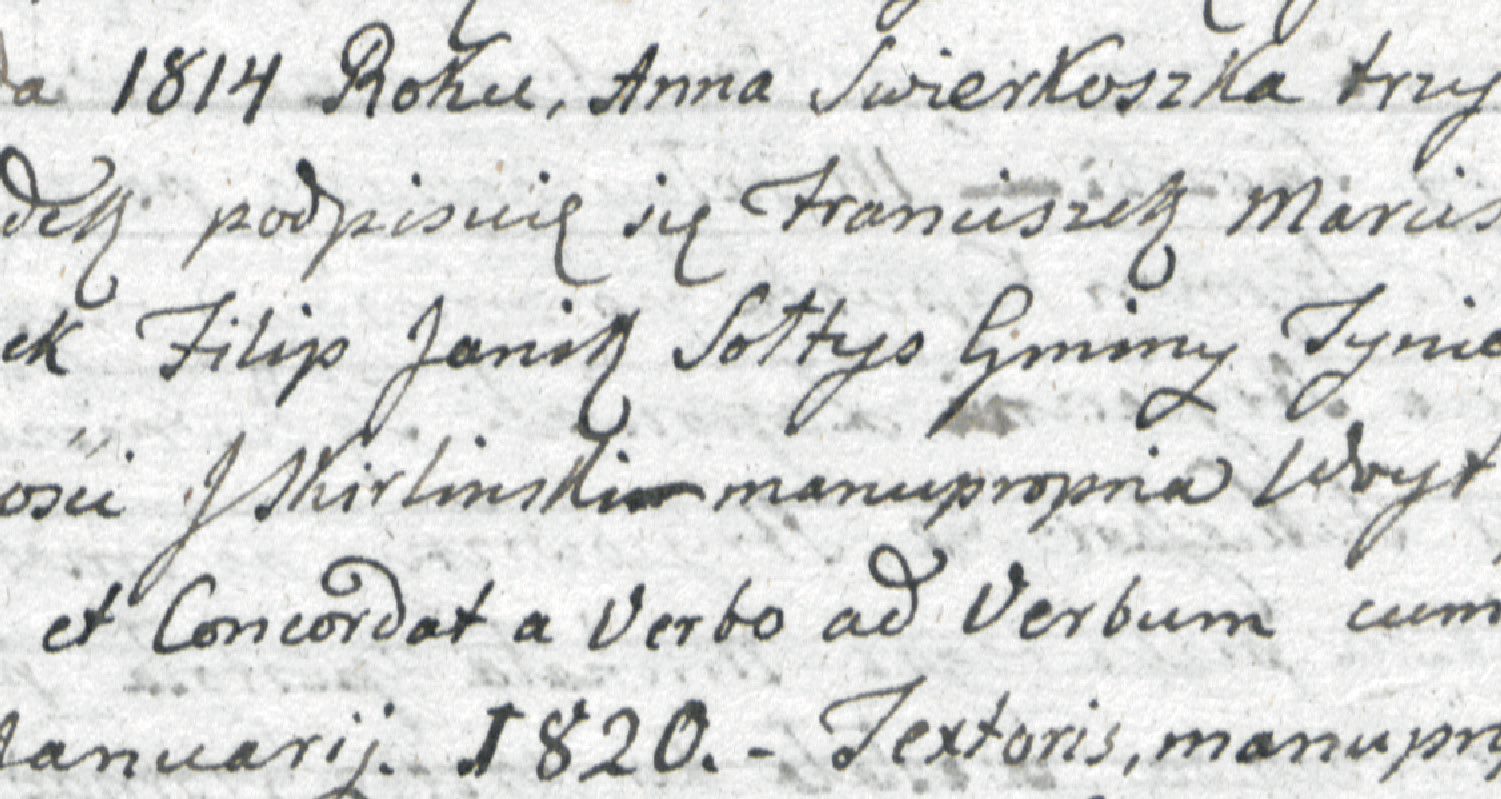 da 1814 Roku, Anna Swierkoszka trzy
dek podpisuię się Franciszek Marcis
ek Filip Janik Sołtys Gminy Tynie
osci J Skirlinski manupropria Woyt
et Concordat a Verbo ad Verbum cum
Januarij. 1820. - Textoris, manupro